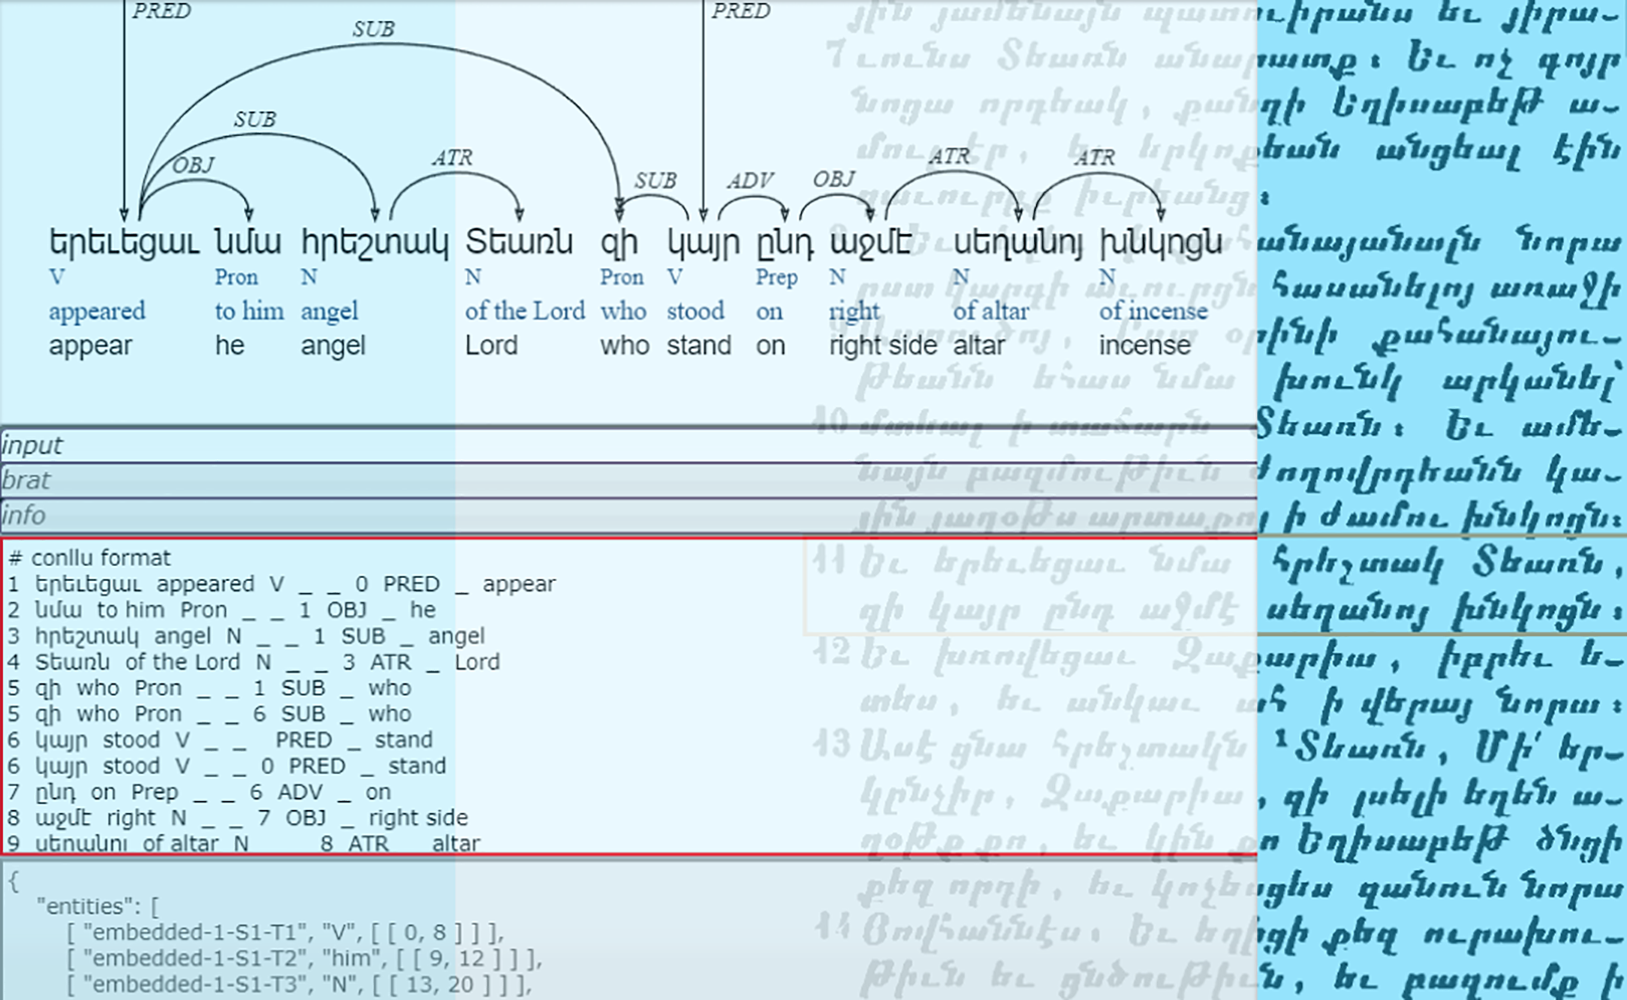 PRED PRED
SUB
SUB
OBJ ATR SUB ADV OBJ ATR ATR
երեւեցաւ նմա հրեշտակ Տեառն զի կայր ընդ աջմէ սեղանոյ խնկոցն
V Pron N N Pron V Prep N N N
appeared to him angel of the Lord who stood on right of altar of incense
appear he angel Lord who stand on right side altar incense
input
brat
info
# conllu format
1 երեւեցաւ appeared V _ _ 0 PRED _ appear
2 նմա to him Pron _ _ 1 OBJ _ he
3 հրեշտակ angel N _ _ 1 SUB _ angel
4 Տեառն of the Lord N _ _ 3 ATR _ Lord
5 զի who Pron _ _ 1 SUB _ who
5 զի who Pron _ _ 6 SUB _ who
6 կայր stood V _ _ PRED _ stand
6 կայր stood V _ _ 0 PRED _ stand
7 ընդ on Prep _ _ 6 ADV _ on
8 աջմէ right N _ _ 7 OBJ _ right side
9 սեղանոյ of altar N 8 ATR altar
{
"entities": [
[ "embedded-1-S1-T1", "V", [ [ 0, 8 ] ] ],
[ "embedded-1-S1-T2", "him", [ [ 9, 12 ] ] ],
[ "embedded-1-S1-T3", "N", [ [ 13, 20 ] ] ],
յին յամենայն պատուիրանս եւ յիրա-
7 ւունս Տեառն անարատք։ Եւ ոչ գոյր
նոցա որդեակ, քանզի Եղիսաբեթ ա-
մուլ էր, եւ երկոքեան անցեալ էին
զաւուրբք իւրեանց։
քահանայանալն նորա
ըստ կարգի աւուրցն հասանելոյ առաջի
9 Աստուծոյ, Ըստ օրինի քահանայու-
թեանն եհաս նմա խունկ արկանել՝
10 մտեալ ի տաճարն Տեառն։ Եւ ամե-
նայն բազմութիւն ժողովրդեանն կա-
յին յաղօթս արտաքոյ ի ժամու խնկոցն։
11 Եւ երեւեցաւ նմա հրեշտակ Տեառն,
զի կայր ընդ աջմէ սեղանոյ խնկոցն։
12 Եւ խռովեցաւ Զաքարիա, իբրեւ ե-
տես, եւ անկաւ ահ ի վերայ նորա։
13 Ասէ ցնա հրեշտակն ¹Տեառն, Մի՛ եր-
կընչիր, Զաքարիա, զի լսելի եղեն ա-
ղօթք քո, եւ կին քո Եղիսաբեթ ծնցի
քեզ որդի, եւ կոչեսցես զանուն նորա
14 Յովհաննէս։ Եւ եղիցի քեզ ուրախու-
թիւն եւ ցնծութիւն, եւ բազումք ի